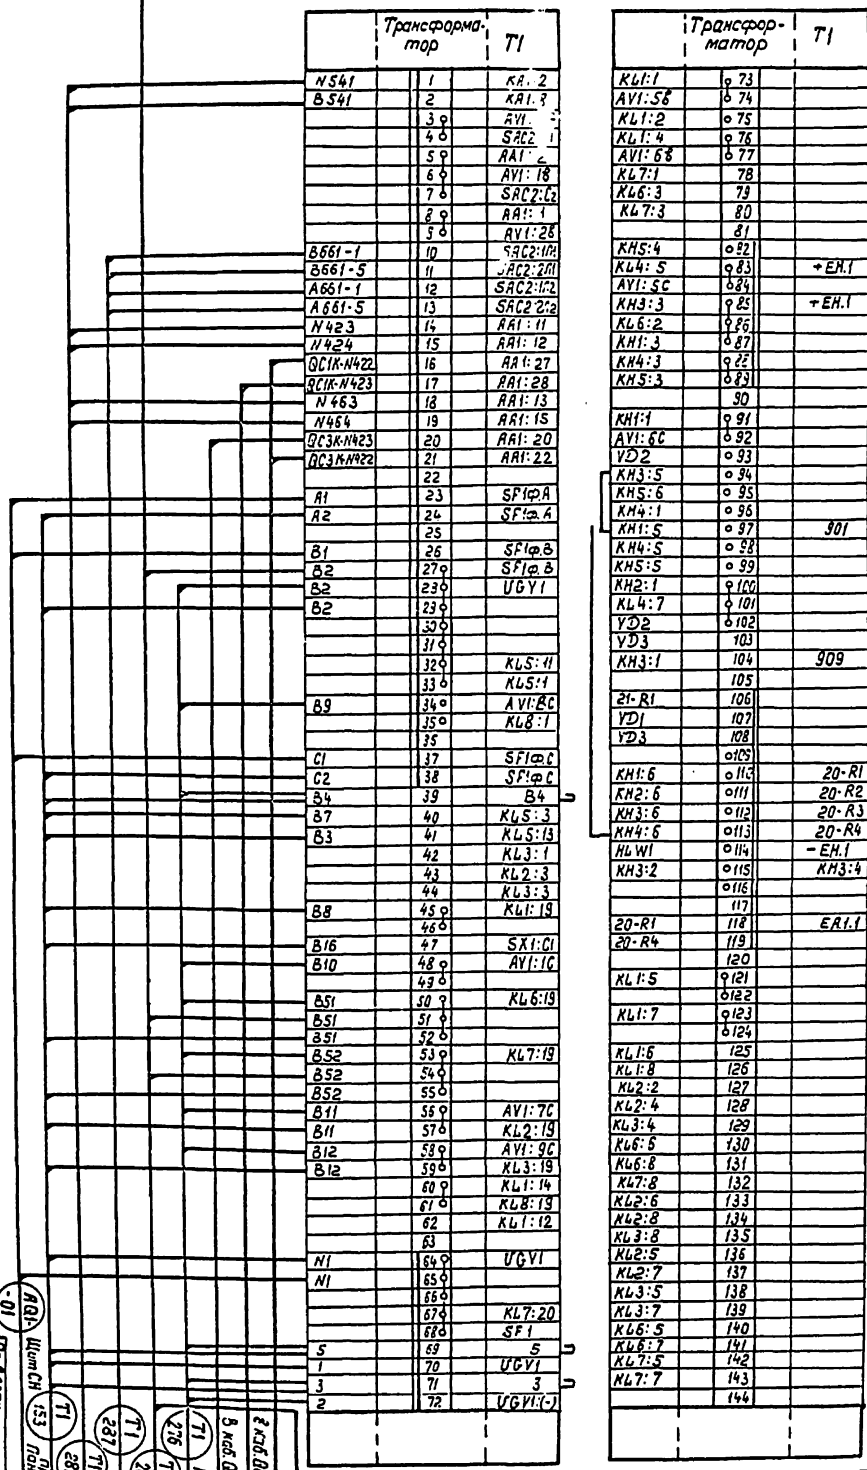 Трансформатор T1
N541 1 KA1:2
B541 2
3
4
5
6 AV1:1B
7 SAC2:C2
8 AA1:1
9 AV1:2B
B661-1 10
B661-5 11
A661-1 12
A661-5 13
N423 14 AA1:11
N424 15 AA1:12
QC1K-N422 16 AA1:27
QC1K-N423 17 AA1:28
N463 18 AA1:13
N464 19 AA1:15
QC3K-N423 20 AA1:20
QC3K-N422 21 AA1:22
22
A1 23 SF1ф.A
A2 24 SF1ф.A
25
B1 26 SF1ф.B
B2 27 SF1ф.B
B2 28 UGV1
B2 29
30
31
32 KL5:11
33 KL5:1
B9 34 AV1:8C
35 KL8:1
35
C1 37 SF1ф.C
C2 38 SF1ф.C
B4 39 B4
B7 40 KL5:3
B3 41 KL5:13
42 KL3:1
43 KL2:3
44 KL3:3
B8 45 KL1:19
46
B16 47 SX1:C1
B10 48 AV1:1C
49
B51 50 KL6:19
B51 51
B51 52
B52 53 KL7:19
B52 54
B52 55
B11 56 AV1:7C
B11 57 KL2:19
B12 58 AV1:9C
B12 59 KL3:19
60 KL1:14
61 KL8:19
62 KL1:12
63
N1 64 UGV1
N1 65
66
67 KL7:20
68 SF1
5 69 5
1 70 UGV1
3 71 3
2 72 UGV1:(-)
Трансформатор T1
KL1:1 73
AV1:5B 74
KL1:2 75
KL1:4 76
AV1:6B 77
KL7:1 78
KL6:3 79
KL7:3 80
81
KH5:4 82
KL4:5 83 +EH.1
AV1:5C 84
KH3:3 85 +EH.1
KL6:2 86
KH1:3 87
KH4:3 88
KH5:3 89
90
KH1:1 91
AV1:6C 92
VD2 93
KH3:5 94
KH5:6 95
KH4:1 96
KH1:5 97 901
KH4:5 98
KH5:5 99
KH2:1 100
KL4:7 101
VD2 102
VD3 103
KH3:1 104 909
105
21-R1 106
VD1 107
VD3 108
109
KH1:6 110 20-R1
KH2:6 111 20-R2
KH3:6 112 20-R3
KH4:6 113 20-R4
HLW1 114 -EH.1
KH3:2 115 KH3:4
116
117
20-R1 118 EA1.1
20-R4 119
120
KL1:5 121
122
KL1:7 123
124
KL1:6 125
KL1:8 126
KL2:2 127
KL2:4 128
KL3:4 129
KL6:6 130
KL6:8 131
KL7:8 132
KL2:6 133
KL2:8 134
KL3:8 135
KL2:5 136
KL2:7 137
KL3:5 138
KL3:7 139
KL6:5 140
KL6:7 141
KL7:5 142
KL7:7 143
144
-01
Щит СН
T1 153
T1
T1 287
T1 276